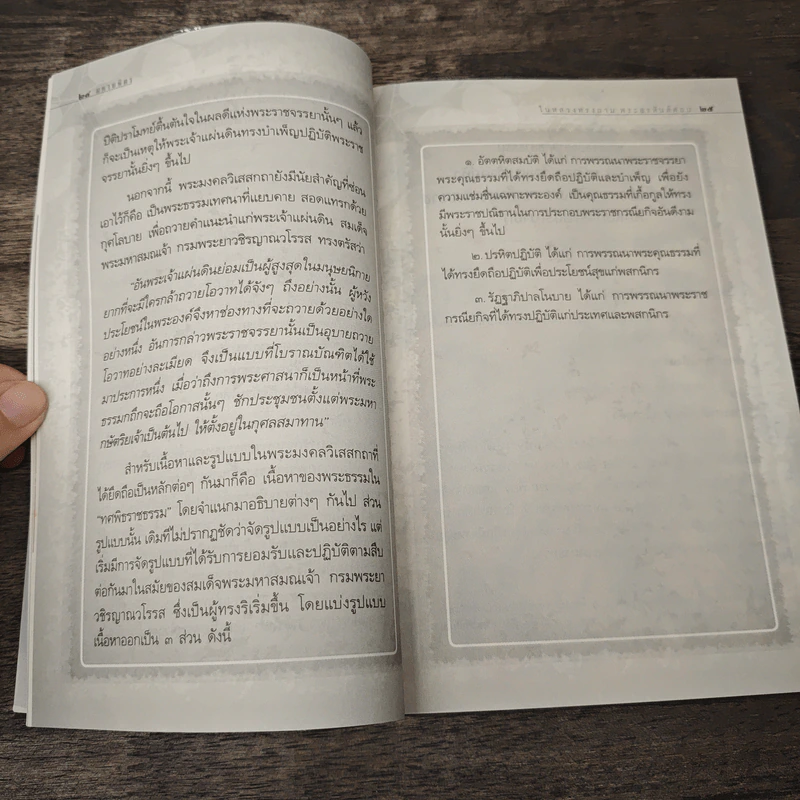 ๒๔
ปีติปราโมทย์ตื้นตันใจในผลดีแห่งพระราชจรรยานั้นๆ แล้ว
ก็จะเป็นเหตุให้พระเจ้าแผ่นดินทรงบำเพ็ญปฏิบัติพระราช
จรรยานั้นยิ่งๆ ขึ้นไป
นอกจากนี้ พระมงคลวิเสสกถายังมีนัยสำคัญที่ซ่อน
เอาไว้ก็คือ เป็นพระธรรมเทศนาที่แยบคาย สอดแทรกด้วย
กุศโลบาย เพื่อถวายคำแนะนำแก่พระเจ้าแผ่นดิน สมเด็จ
พระมหาสมณเจ้า กรมพระยาวชิรญาณวโรรส ทรงตรัสว่า
"อันพระเจ้าแผ่นดินย่อมเป็นผู้สูงสุดในมนุษยนิกาย
ยากที่จะมีใครกล้าถวายโอวาทได้จังๆ ถึงอย่างนั้น ผู้หวัง
ประโยชน์ในพระองค์จึงหาช่องทางที่จะถวายด้วยอย่างใด
อย่างหนึ่ง อันการกล่าวพระราชจรรยานั้นเป็นอุบายถวาย
โอวาทอย่างละเมียด จึงเป็นแบบที่โบราณบัณฑิตได้ใช้
มาประการหนึ่ง เมื่อว่าถึงการพระศาสนาก็เป็นหน้าที่พระ
ธรรมกถึกจะถือโอกาสนั้นๆ ชักประชุมชนตั้งแต่พระมหา
กษัตริยเจ้าเป็นต้นไป ให้ตั้งอยู่ในกุศลสมาทาน"
สำหรับเนื้อหาและรูปแบบในพระมงคลวิเสสกถาที่
ได้ยึดถือเป็นหลักต่อๆ กันมาก็คือ เนื้อหาของพระธรรมใน
"ทศพิธราชธรรม" โดยจำแนกมาอธิบายต่างๆ กันไป ส่วน
รูปแบบนั้น เดิมทีไม่ปรากฏชัดว่าจัดรูปแบบเป็นอย่างไร แต่
เริ่มมีการจัดรูปแบบที่ได้รับการยอมรับและปฏิบัติตามสืบ
ต่อกันมาในสมัยของสมเด็จพระมหาสมณเจ้า กรมพระยา
วชิรญาณวโรรส ซึ่งเป็นผู้ทรงริเริ่มขึ้น โดยแบ่งรูปแบบ
เนื้อหาออกเป็น ๓ ส่วน ดังนี้
๒๕
๑. อัตตหิตสมบัติ ได้แก่ การพรรณนาพระราชจรรยา
พระคุณธรรมที่ได้ทรงยึดถือปฏิบัติและบำเพ็ญ เพื่อยัง
ความแช่มชื่นเฉพาะพระองค์ เป็นคุณธรรมที่เกื้อกูลให้ทรง
มีพระราชปณิธานในการประกอบพระราชกรณียกิจอันดีงาม
นั้นยิ่งๆ ขึ้นไป
๒. ปรหิตปฏิบัติ ได้แก่ การพรรณนาพระคุณธรรมที่
ได้ทรงยึดถือปฏิบัติเพื่อประโยชน์สุขแก่พสกนิกร
๓. รัฏฐาภิปาลโนบาย ได้แก่ การพรรณนาพระราช
กรณียกิจที่ได้ทรงปฏิบัติแก่ประเทศและพสกนิกร